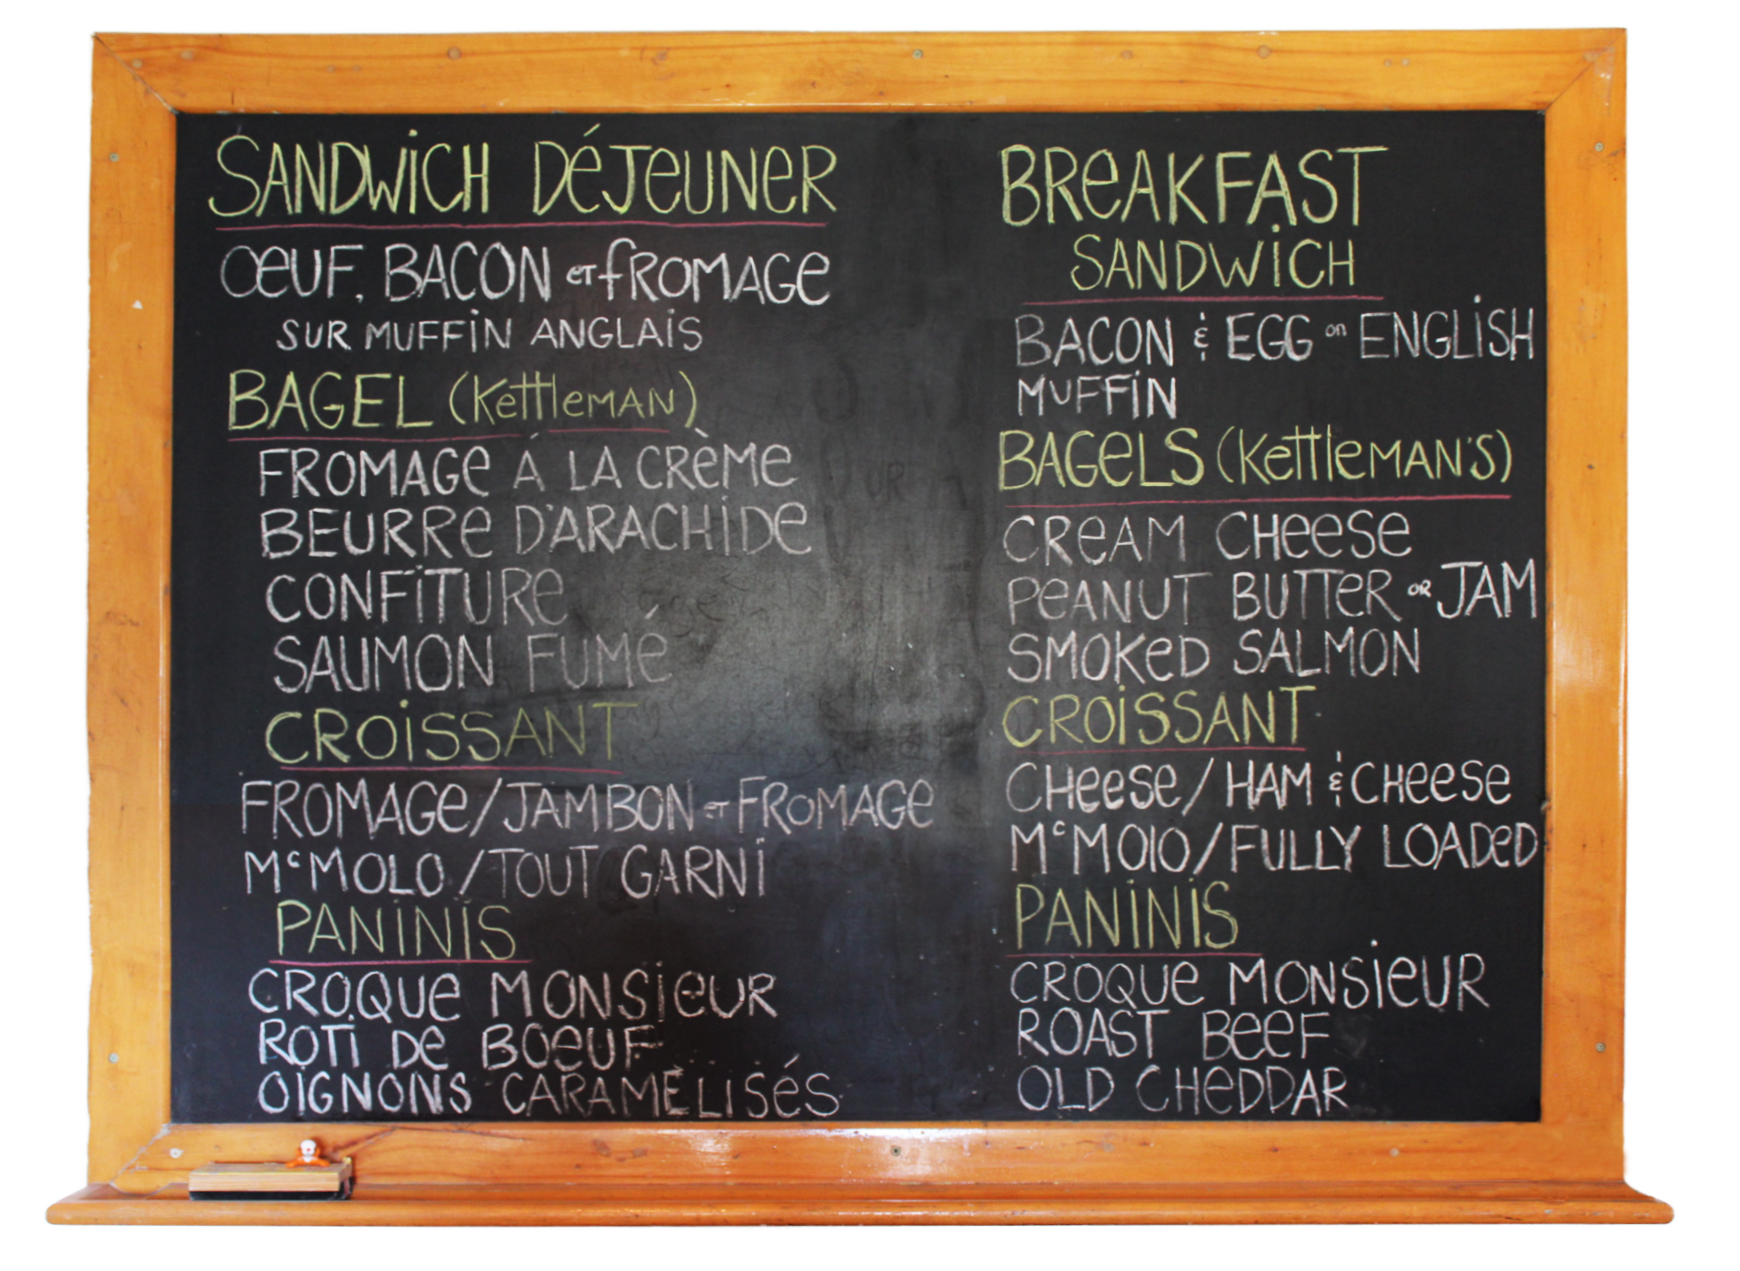 SANDWICH DÉJEUNER
OEUF, BACON ET FROMAGE
SUR MUFFIN ANGLAIS
BAGEL (Kettleman)
FROMAGE À LA CRÈME
BEURRE D'ARACHIDE
CONFITURE
SAUMON FUMÉ
CROISSANT
FROMAGE/JAMBON ET FROMAGE
McMOLO/TOUT GARNI
PANINIS
CROQUE MONSIEUR
ROTI DE BOEUF
OIGNONS CARAMÈLISÉS
BREAKFAST
SANDWICH
BACON & EGG on ENGLISH
MUFFIN
BAGELS (Kettleman's)
CREAM CHEESE
PEANUT BUTTER OR JAM
SMOKED SALMON
CROISSANT
CHEESE/HAM & CHEESE
McMOLO/FULLY LOADED
PANINIS
CROQUE MONSIEUR
ROAST BEEF
OLD CHEDDAR